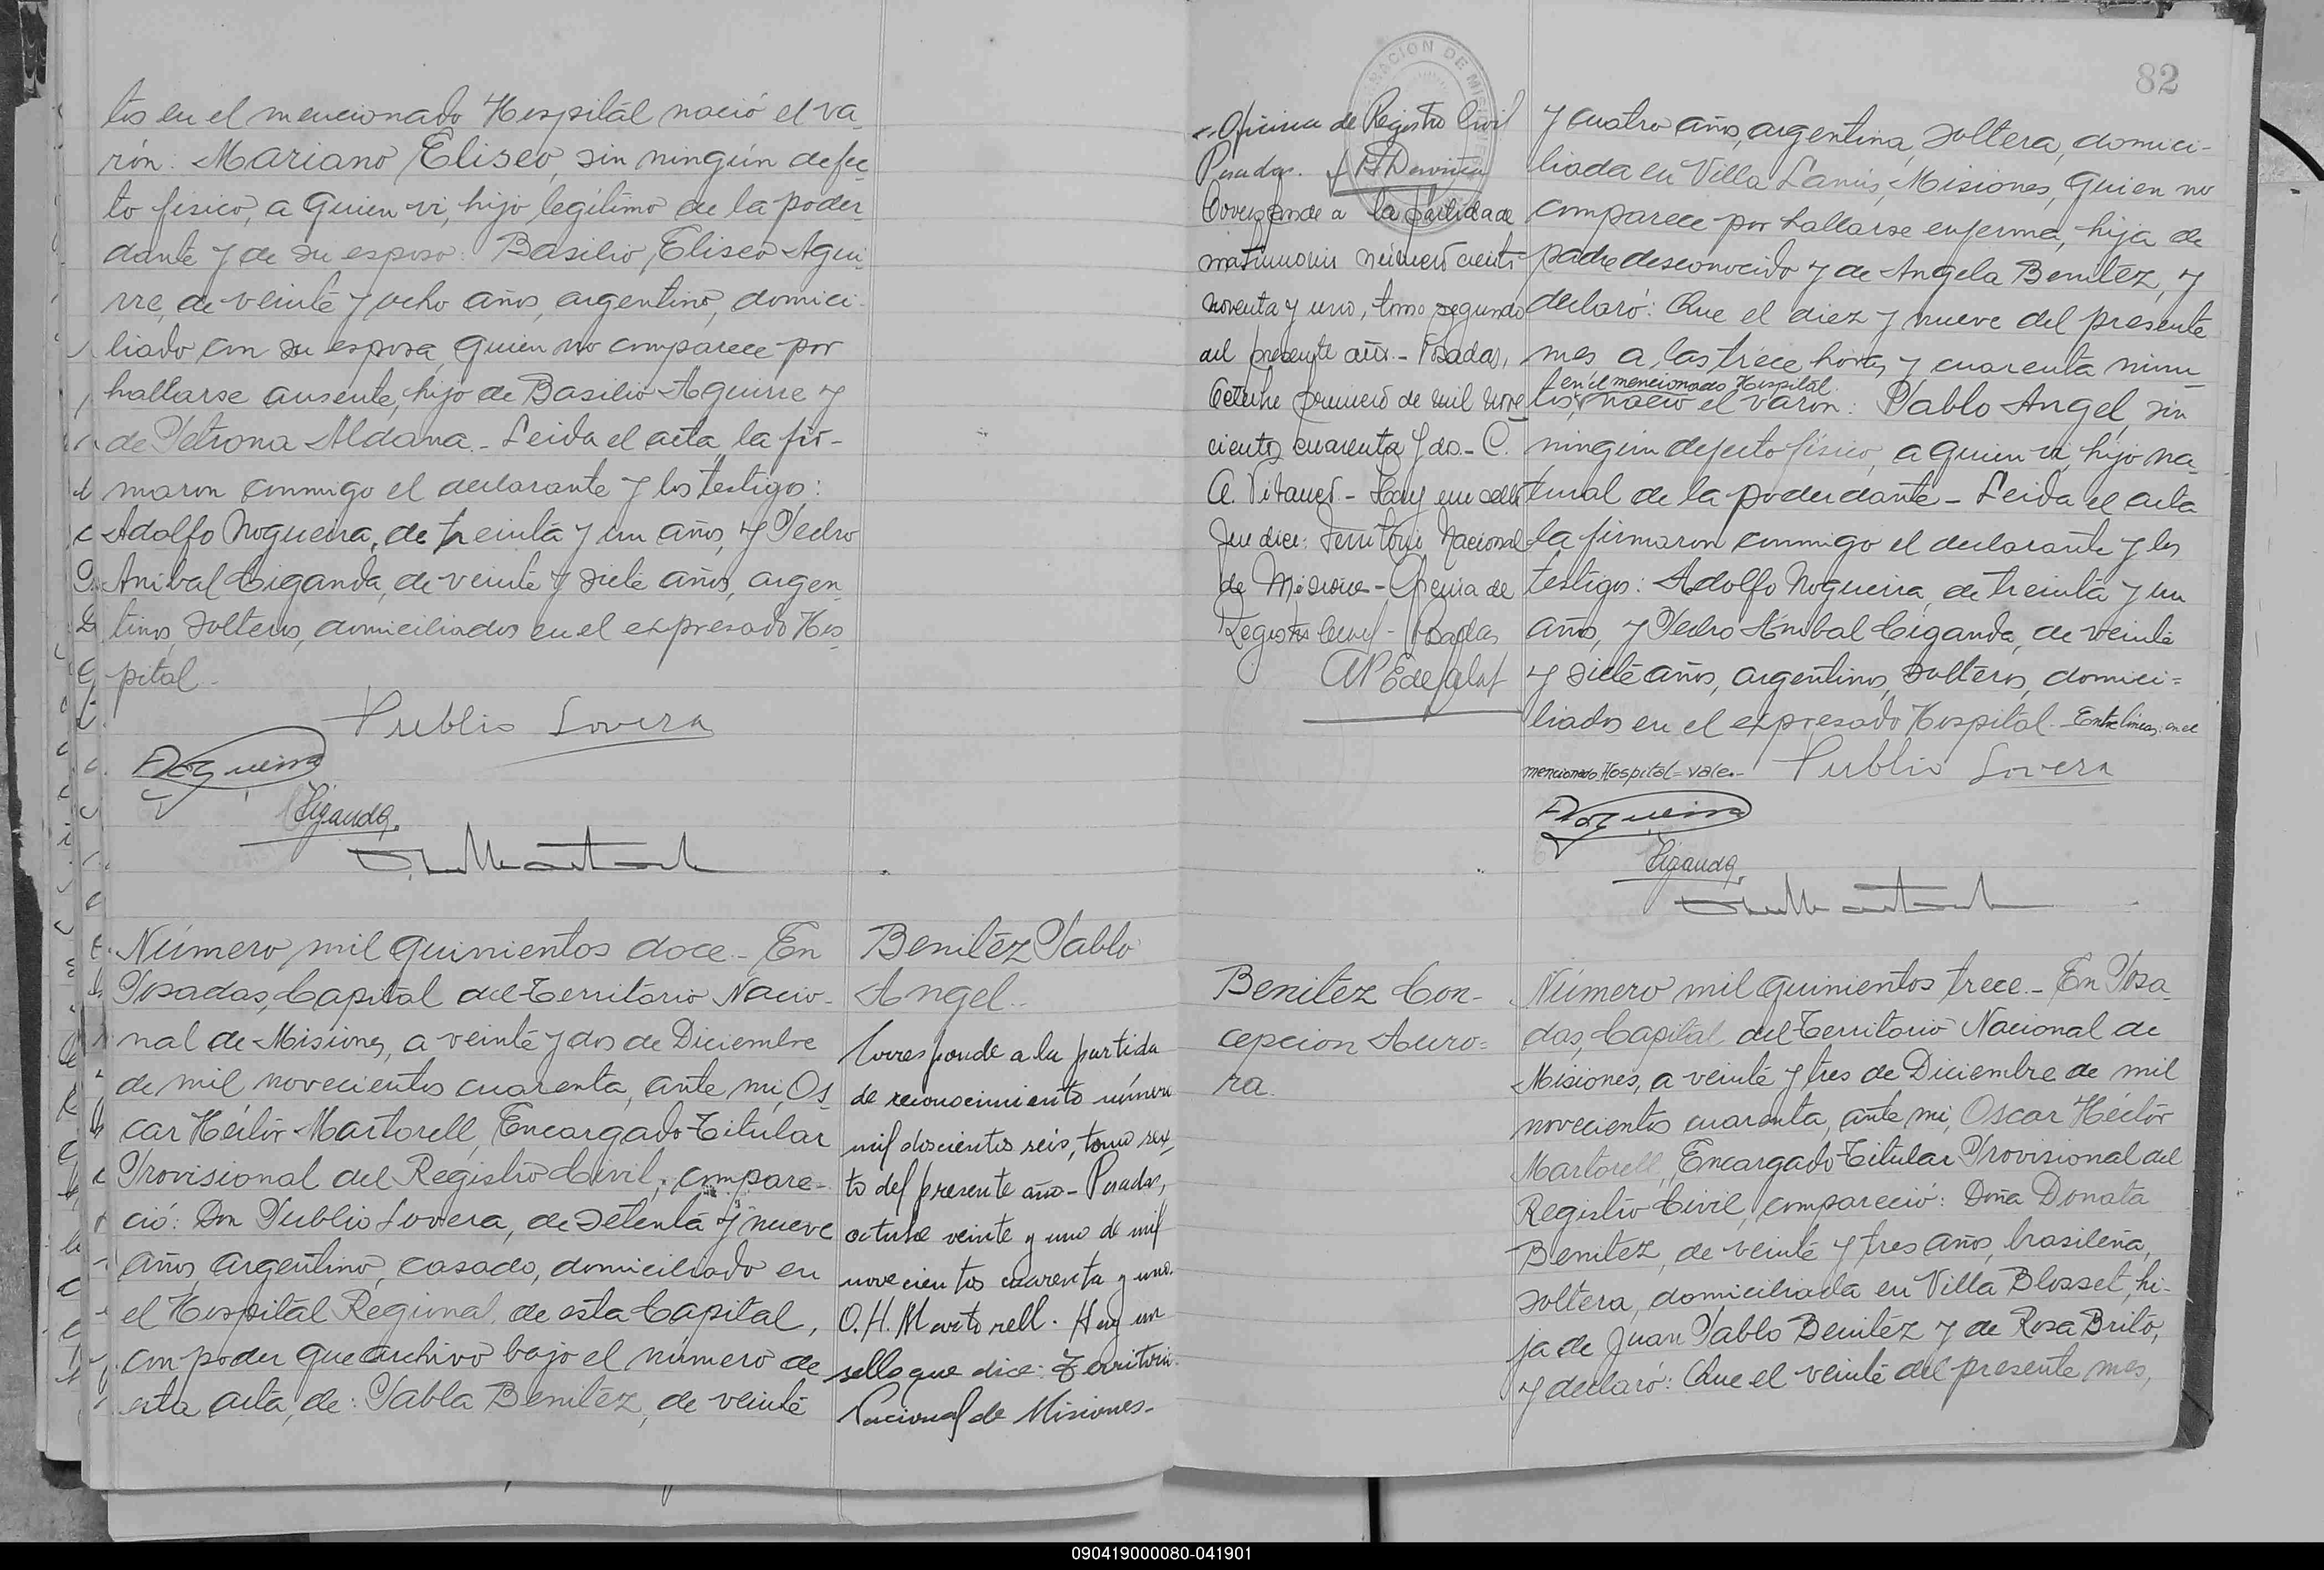 tos en el mencionado Hospital nació el va-
rón: Mariano Eliseo, sin ningún defec-
to físico, a quien vi, hijo legítimo de la poder-
dante y de su esposo: Basilio Eliseo Agui-
rre, de veinte y ocho años, argentino, domici-
liado con su esposa, quien no comparece por
hallarse ausente, hijo de Basilio Aguirre y
de Petrona Aldana.- Leida el acta, la fir-
maron conmigo el declarante y los testigos:
Adolfo Nogueira, de treinta y un años, y Pedro
Anibal Ciganda, de veinte y siete años, argen-
tinos, solteros, domiciliados en el expresado Hos-
pital.-
Publio Lovera
ANogueira
Ciganda
Número mil quinientos doce.- En
Posadas, Capital del Territorio Nacio-
nal de Misiones, a veinte y dos de Diciembre
de mil novecientos cuarenta, ante mi, Os-
car Héctor Martorell, Encargado Titular
Provisional del Registro Civil, compare-
ció: Don Publio Lovera, de setenta y nueve
años, argentino, casado, domiciliado en
el Hospital Regional de esta Capital,
con poder que archivo bajo el número de
esta acta, de: Pabla Benítez, de veinte
Benítez Pablo
Angel.-
Corresponde a la partida
de reconocimiento número
mil doscientos seis, tomo sex-
to del presente año - Posadas,
octubre veinte y uno de mil
novecientos cuarenta y uno.
O. H. Martorell. Hay un
sello que dice: Territorio
Nacional de Misiones.-
82
GOBERNACION DE MISIONES
Oficina de Registro Civil
Posadas.
Corresponde a la partida de
matrimonio número ciento
noventa y uno, tomo segundo
del presente año.- Posadas,
Octubre primero de mil nove
cientos cuarenta y dos.- C.
A. Vitauer.- Hay un sello
que dice: Territorio Nacional
de Misiones - Oficina de
Registro Civil - Posadas
y cuatro años, argentina, soltera, domici-
liada en Villa Lanús, Misiones, quien no
comparece por hallarse enferma, hija de
padre desconocido y de Angela Benítez, y
declaró: Que el diez y nueve del presente
mes a las trece horas y cuarenta minu-
en el mencionado Hospital
tos, nació el varón: Pablo Angel, sin
ningún defecto físico, a quien vi, hijo na-
tural de la poderdante.- Leida el acta
la firmaron conmigo el declarante y los
testigos: Adolfo Nogueira, de treinta y un
años, y Pedro Aníbal Ciganda, de veinte
y siete años, argentinos, solteros, domici-
liados en el expresado Hospital.- Entre líneas: en el
mencionado Hospital = vale.- Publio Lovera
ANogueira
Ciganda
Benítez Con-
cepcion Auro-
ra.
Número mil quinientos trece.- En Posa-
das, Capital del Territorio Nacional de
Misiones, a veinte y tres de Diciembre de mil
novecientos cuarenta, ante mi, Oscar Héctor
Martorell, Encargado Titular Provisional del
Registro Civil, compareció: Doña Donata
Benítez, de veinte y tres años, brasileña,
soltera, domiciliada en Villa Blosset, hi-
ja de Juan Pablo Benítez y de Rosa Brito,
y declaró: Que el veinte del presente mes,
090419000080-041901